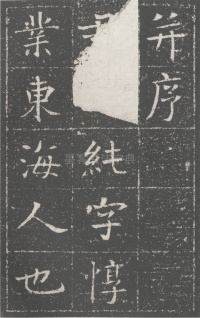 并序
純字惇
業東海人也